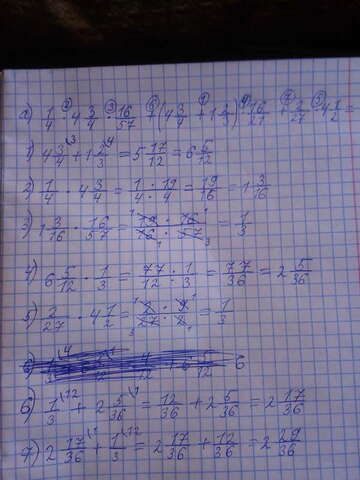 а) 1/4 · 4 3/4 · 16/57 + (4 3/4 + 1 2/3) · 16/21 + 2/27 · 4 1/2 =
1) 4 3/4 + 1 2/3 = 5 17/12 = 6 5/12
2) 1/4 · 4 3/4 = 1/4 · 19/4 = 19/16 = 1 3/16
3) 1 3/16 · 16/57 = 19/16 · 16/57 = 1/3
4) 6 5/12 · 1/3 = 77/12 · 1/3 = 77/36 = 2 5/36
5) 2/27 · 4 1/2 = 2/27 · 9/2 = 1/3
6) 1/3 + 2 5/36 = 12/36 + 2 5/36 = 2 17/36
7) 2 17/36 + 1/3 = 2 17/36 + 12/36 = 2 29/36